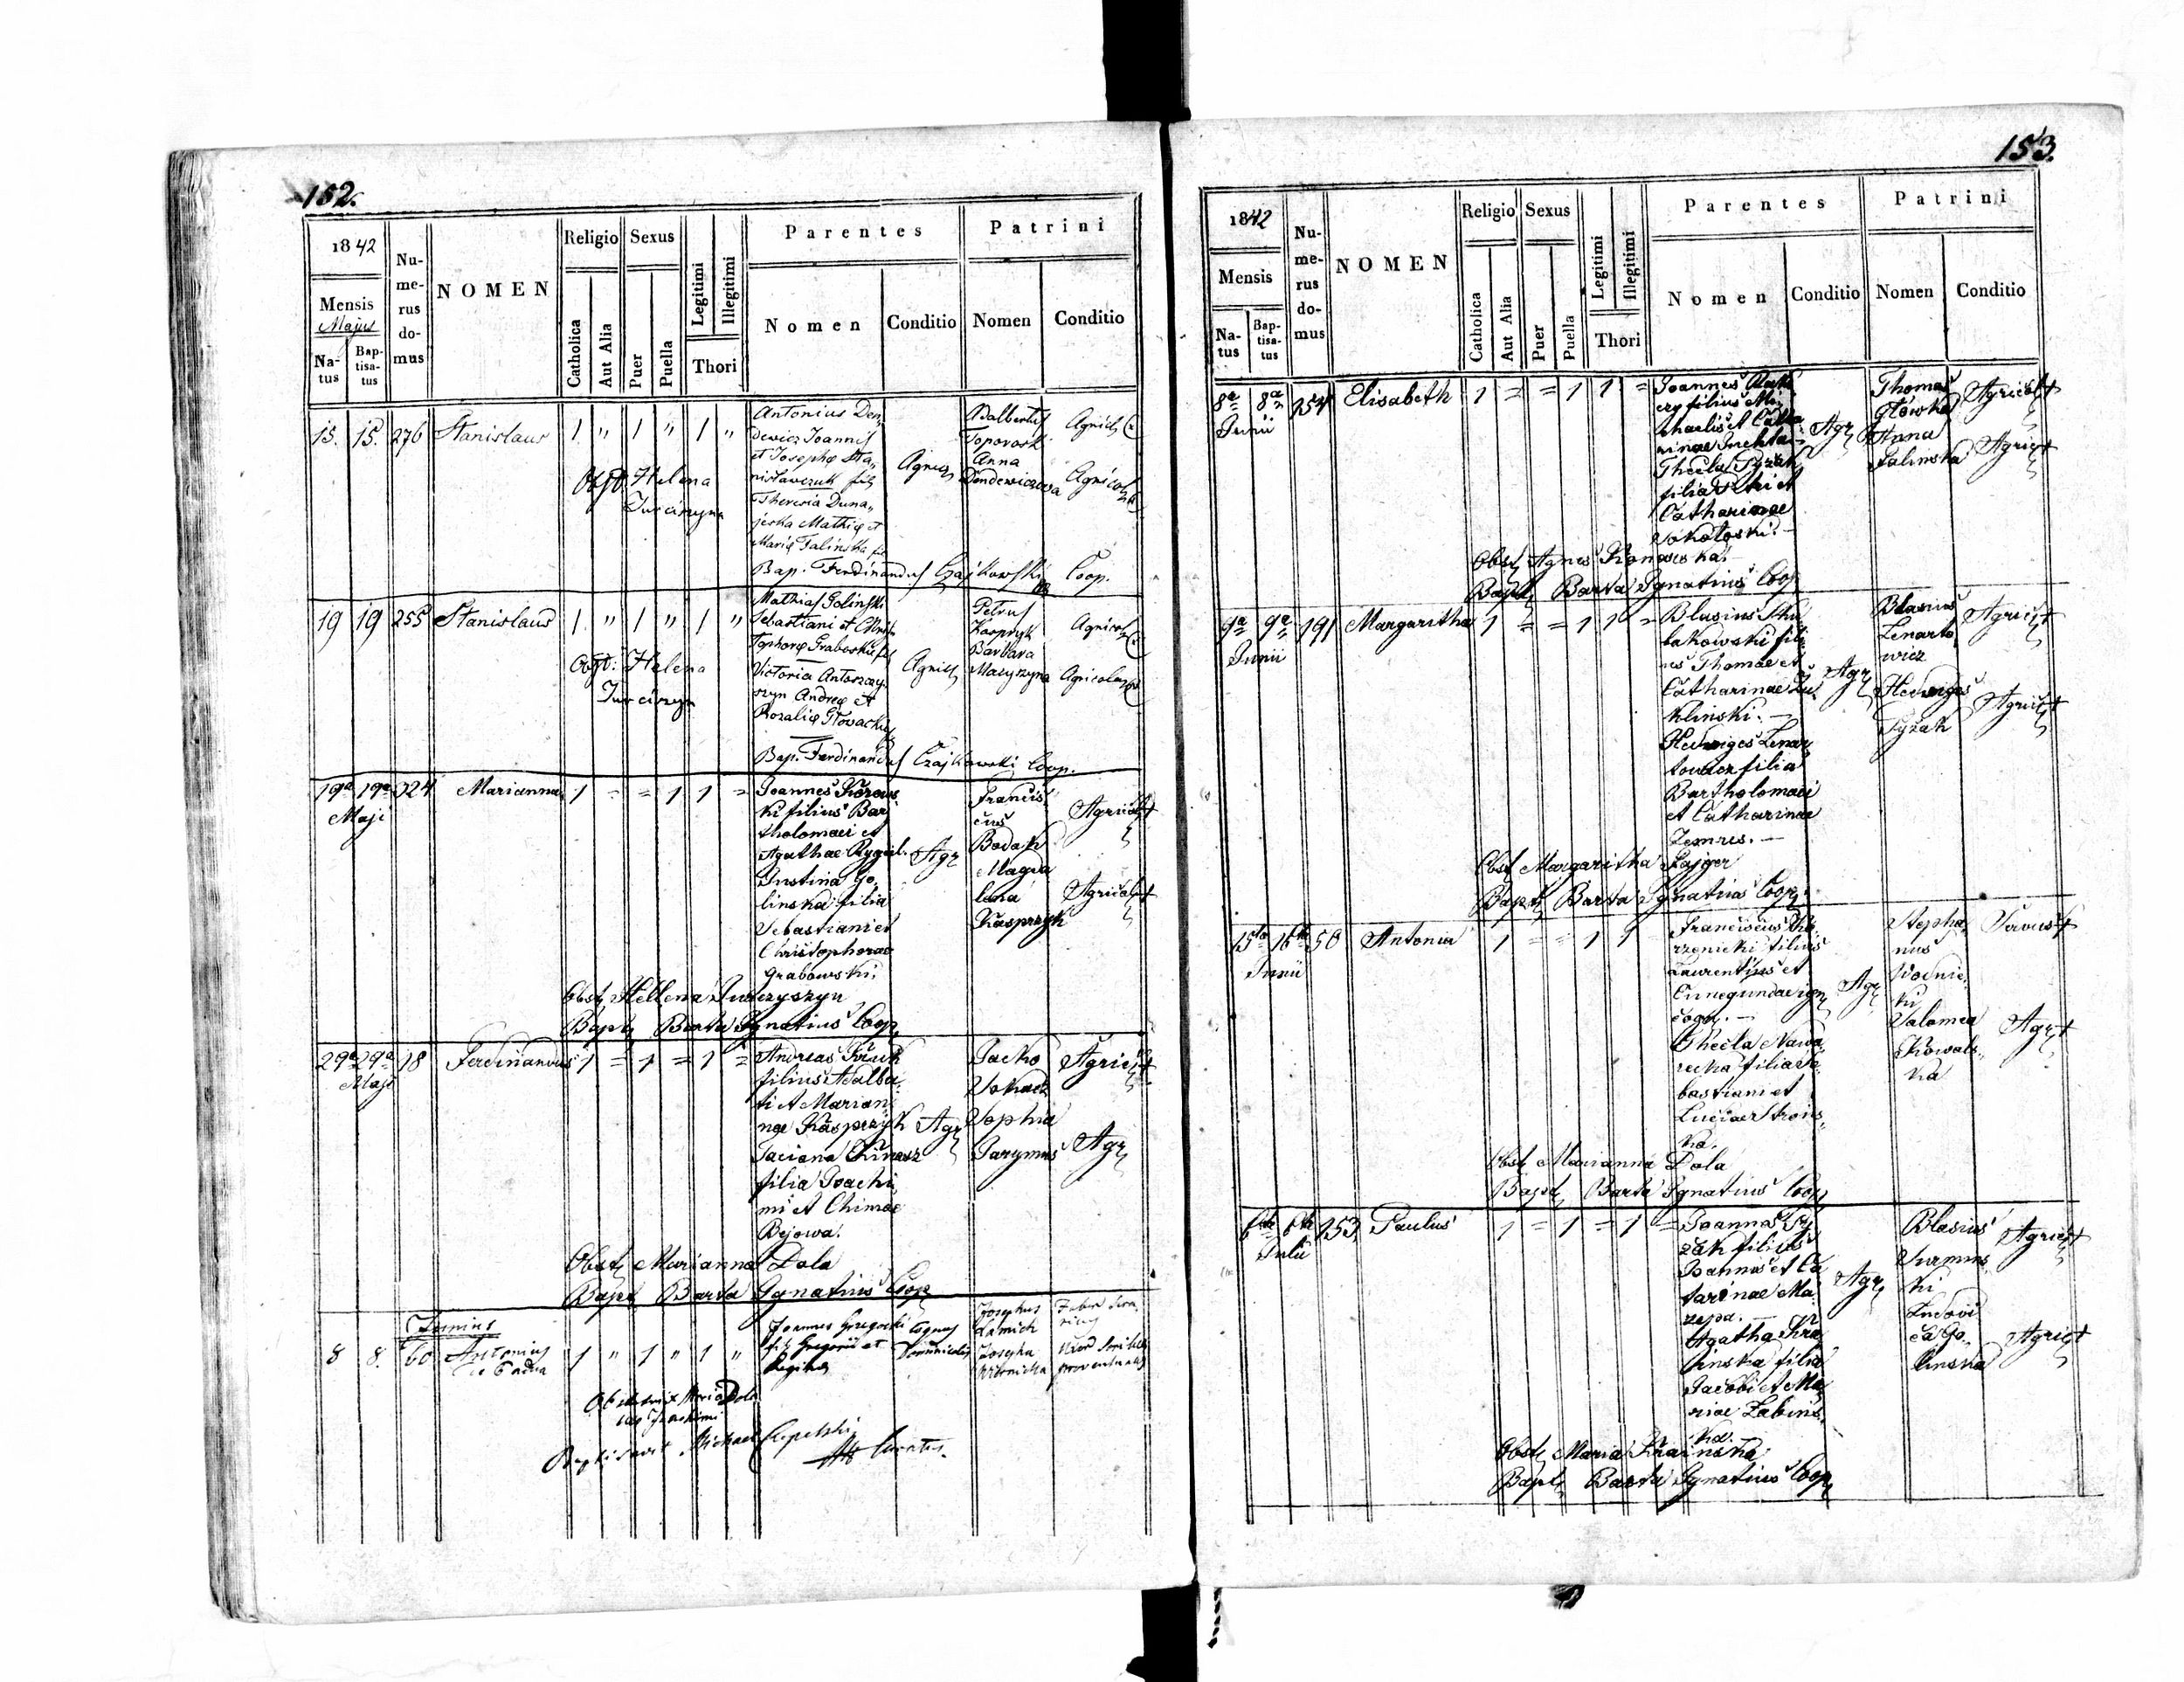 152.
1842
Mensis
Majus
Natus
Baptisatus
Numerus domus
NOMEN
Religio
Catholica
Aut Alia
Sexus
Puer
Puella
Legitimi
Illegitimi
Thori
Parentes
Nomen
Conditio
Patrini
Nomen
Conditio
15. 15. 276 Stanislaus 1 " 1 " 1 "
Antonius Den„
dewicz Joannis
et Josephę Sta„
nisławczuk fil
Theresia Duna„
jerka Mathię et
Marię Falinska fil
Agric
Adalbertus
Toporosk
Anna
Dendewiczowa
Agricol
Agricol
Obst. Helena
Turciszyn
Bap. Ferdinandus Czajkowski Coop.
19 19 255 Stanislaus 1 " 1 " 1 "
Mathias Golinski
Sebastiani et Chris
tophorę Graboski fil
Victoria Antoszczy
szyn Andreę et
Rozalię Głovacki
Agric
Petrus
Kasprzyk
Barbara
Macyszyna
Agricol
Agricola
Obst: Helena
Turciszyn
Bap. Ferdinandus Czajkowski Coop.
19a 19a 324 Marianna 1 = = 1 1 =
Maji
Joannes
ki filius Bar
tholomaei et
Agathae
Justina Go
linska filia
Sebastiani et
Christopherae
Grabowski.
Agr
Francis
cus
Bodak
Magda
lena
Kasprzyk
Agricol
Agricol
Obst Hellena Turczyszyn
Bapt Barta Ignatius Coop
29a 29a 18 Ferdinandus 1 = 1 = 1 =
Maji
Andreas
filius Adalber
ti et Marian
nae Kasprzyk
Taciana
filia Joachi
mi et Chimae
Bejowa.
Agr
Jacko
Sophia
Agric
Agr
Obst Marianna Dola
Bapt Barta Ignatius Coop
Junius
8 8. 60 Antonius
de Padua
1 " 1 " 1 "
Joannes Gregocki
fil Gregorii et
Reginae
Josephus
Lamich
Josepha
Faber
Obstetrix Maria Dola
Baptisavit Michael
Curatus.
153.
1842
Mensis
Natus
Baptisatus
Numerus domus
NOMEN
Religio
Catholica
Aut Alia
Sexus
Puer
Puella
Legitimi
Illegitimi
Thori
Parentes
Nomen
Conditio
Patrini
Nomen
Conditio
8a 8a 254 Elisabeth 1 = = 1 1 =
Junii
Joannes
filius Mi
chaelis et Catha
rinae
Thecla Pyzak
filia Petri et
Catharinae
Sokołoski.
Agr
Thomas
Głowka
Anna
Falinska
Agricol
Agric
Obst Agnes
Bapt Barta Ignatius Coop
9a 9a 191 Margaritha 1 = = 1 1 =
Junii
Blasius Sku
bakowski fili
us Thomae et
Catharinae Zu
klinski.
Hedviges Lenar
towicz filia
Bartholomaei
et Catharinae
Zemres.
Agr
Blasius
Lenarto
wicz
Hedviges
Pyzak
Agric
Agric
Obst Margaritha Fajger
Bapt Barta Ignatius Coop
15ta 16ta 50 Antonia 1 = = 1 1
Junii
Franciscus
filius
Laurentius et
Cunegundae
Thecla Nawa
recka filia Se
bastiani et
Luciae
ka.
Agr
Stepha
nus
Wodnic
ki
Salomea
Kowals
ka
Servus
Agr
Obst Marianna Dola
Bapt Barta Ignatius Coop
6ta 6ta 253 Paulus 1 = 1 = 1 =
Julii
Joannes Py
zak filius
Joannes et Ca
tarinae Ma
zepa.
Agatha Kra
inska filia
Jacobi et Ma
riae Zabins
ka.
Agr
Blasius
Surmins
ki
Ludovi
ca Go
linska
Agric
Agric
Obst Maria Krainska
Bapt Barta Ignatius Coop